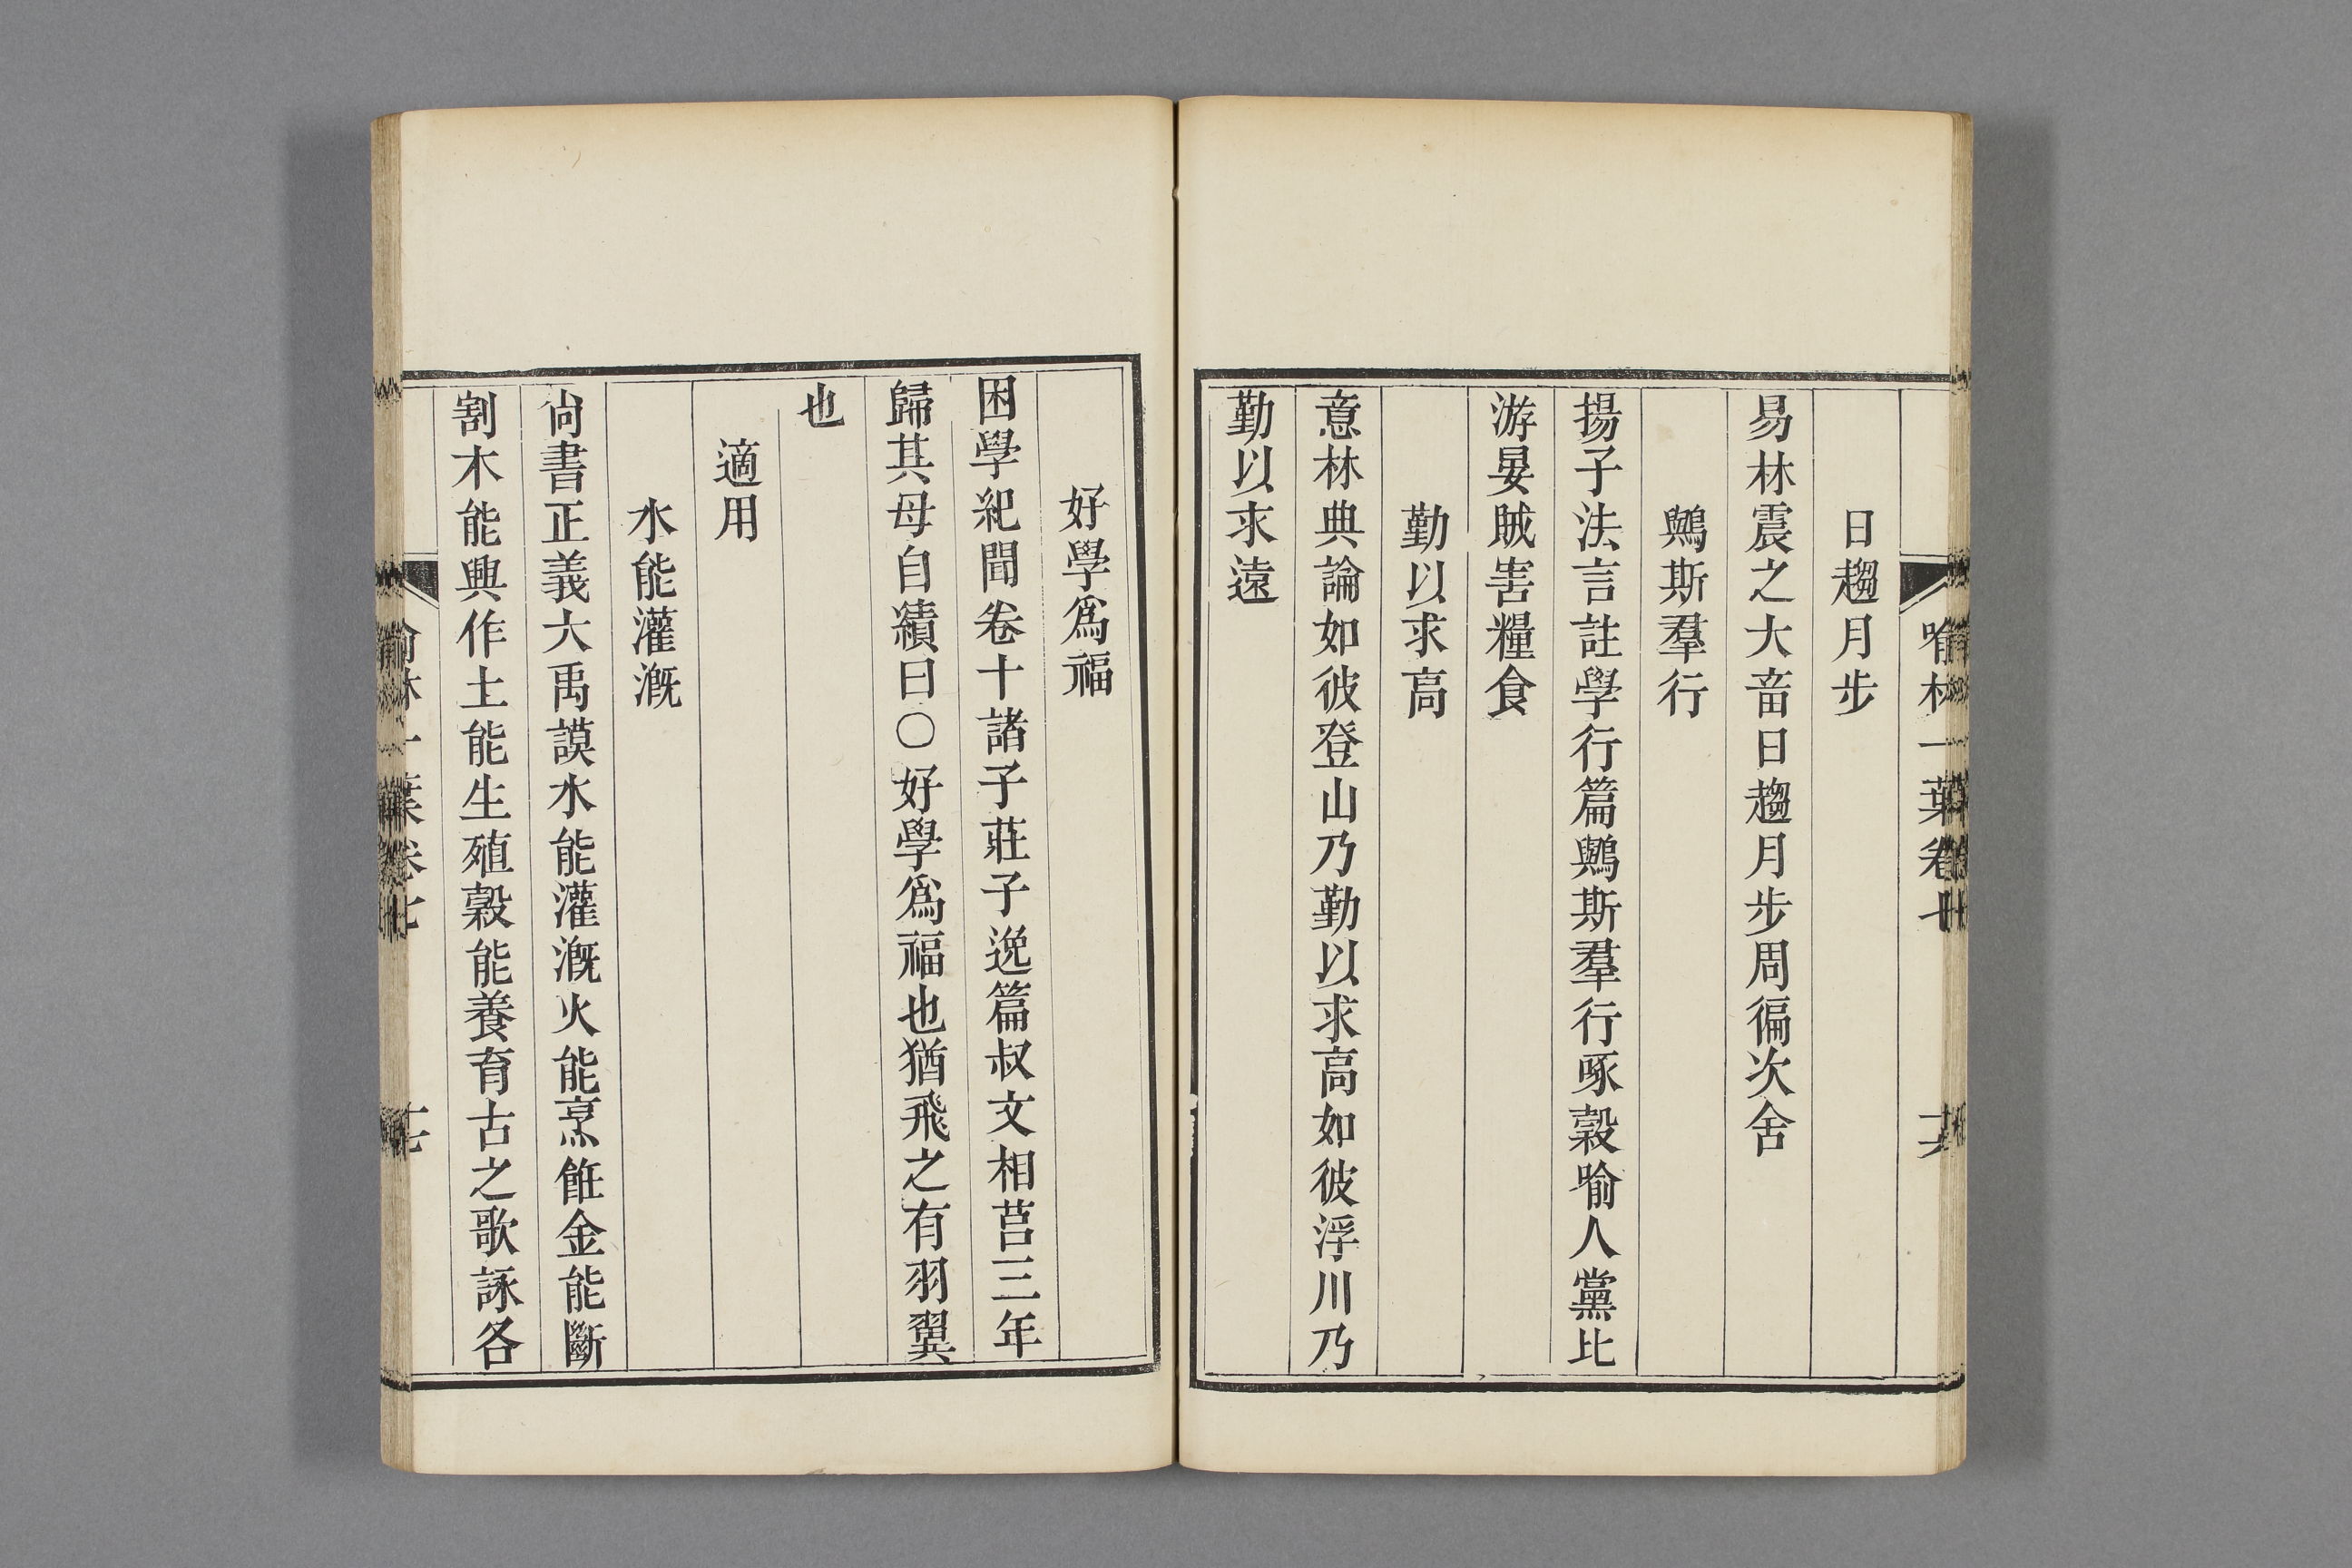 喻林一葉卷七
十六
日趨月步
易林震之大畜日趨月步周徧次舍
鸒斯羣行
揚子法言註學行篇鸒斯羣行啄穀喻人黨比
游晏賊害糧食
勤以求高
意林典論如彼登山乃勤以求高如彼浮川乃
勤以求遠
好學爲福
困學紀聞卷十諸子莊子逸篇叔文相莒三年
歸其母自績曰〇好學爲福也猶飛之有羽翼
也
適用
水能灌漑
尙書正義大禹謨水能灌漑火能烹飪金能斷
割木能興作土能生殖穀能養育古之歌詠各
喻林一葉卷七
十七